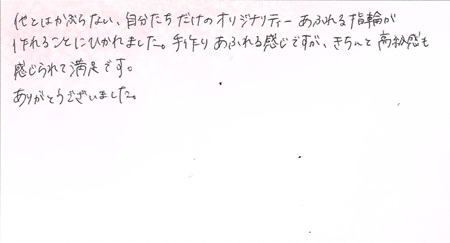 他とはかぶらない、自分たちだけのオリジナリティーあふれる指輪が
作れることにひかれました。手作りあふれる感じですが、きちんと高級感も
感じられて満足です。
ありがとうございました。